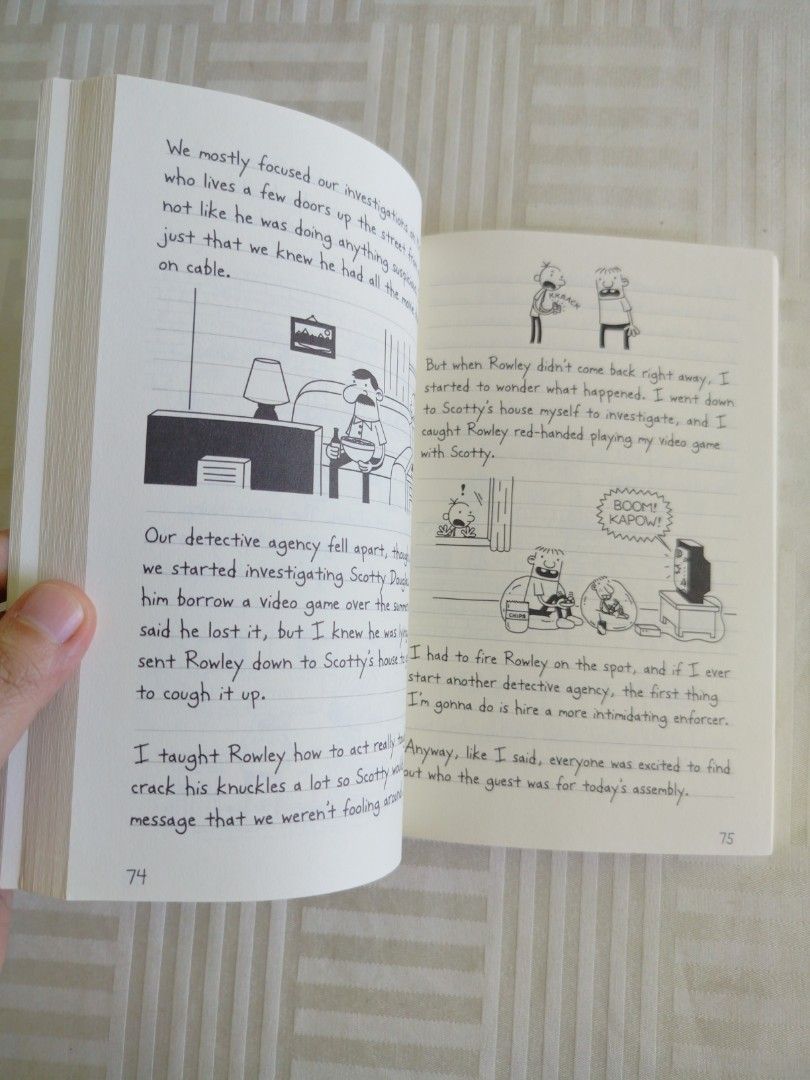 We mostly focused our investigations on
who lives a few doors up the street from
not like he was doing anything suspicious
just that we knew he had all the movie
on cable.
Our detective agency fell apart, though
we started investigating Scotty
him borrow a video game over the summer
said he lost it, but I knew he was
sent Rowley down to Scotty's house to
to cough it up.
I taught Rowley how to act really
crack his knuckles a lot so Scotty would
message that we weren't fooling around
74
KRRACK
But when Rowley didn't come back right away, I
started to wonder what happened. I went down
to Scotty's house myself to investigate, and I
caught Rowley red-handed playing my video game
with Scotty.
!
BOOM!
KAPOW!
CHIPS
I had to fire Rowley on the spot, and if I ever
start another detective agency, the first thing
I'm gonna do is hire a more intimidating enforcer.
Anyway, like I said, everyone was excited to find
out who the guest was for today's assembly.
75